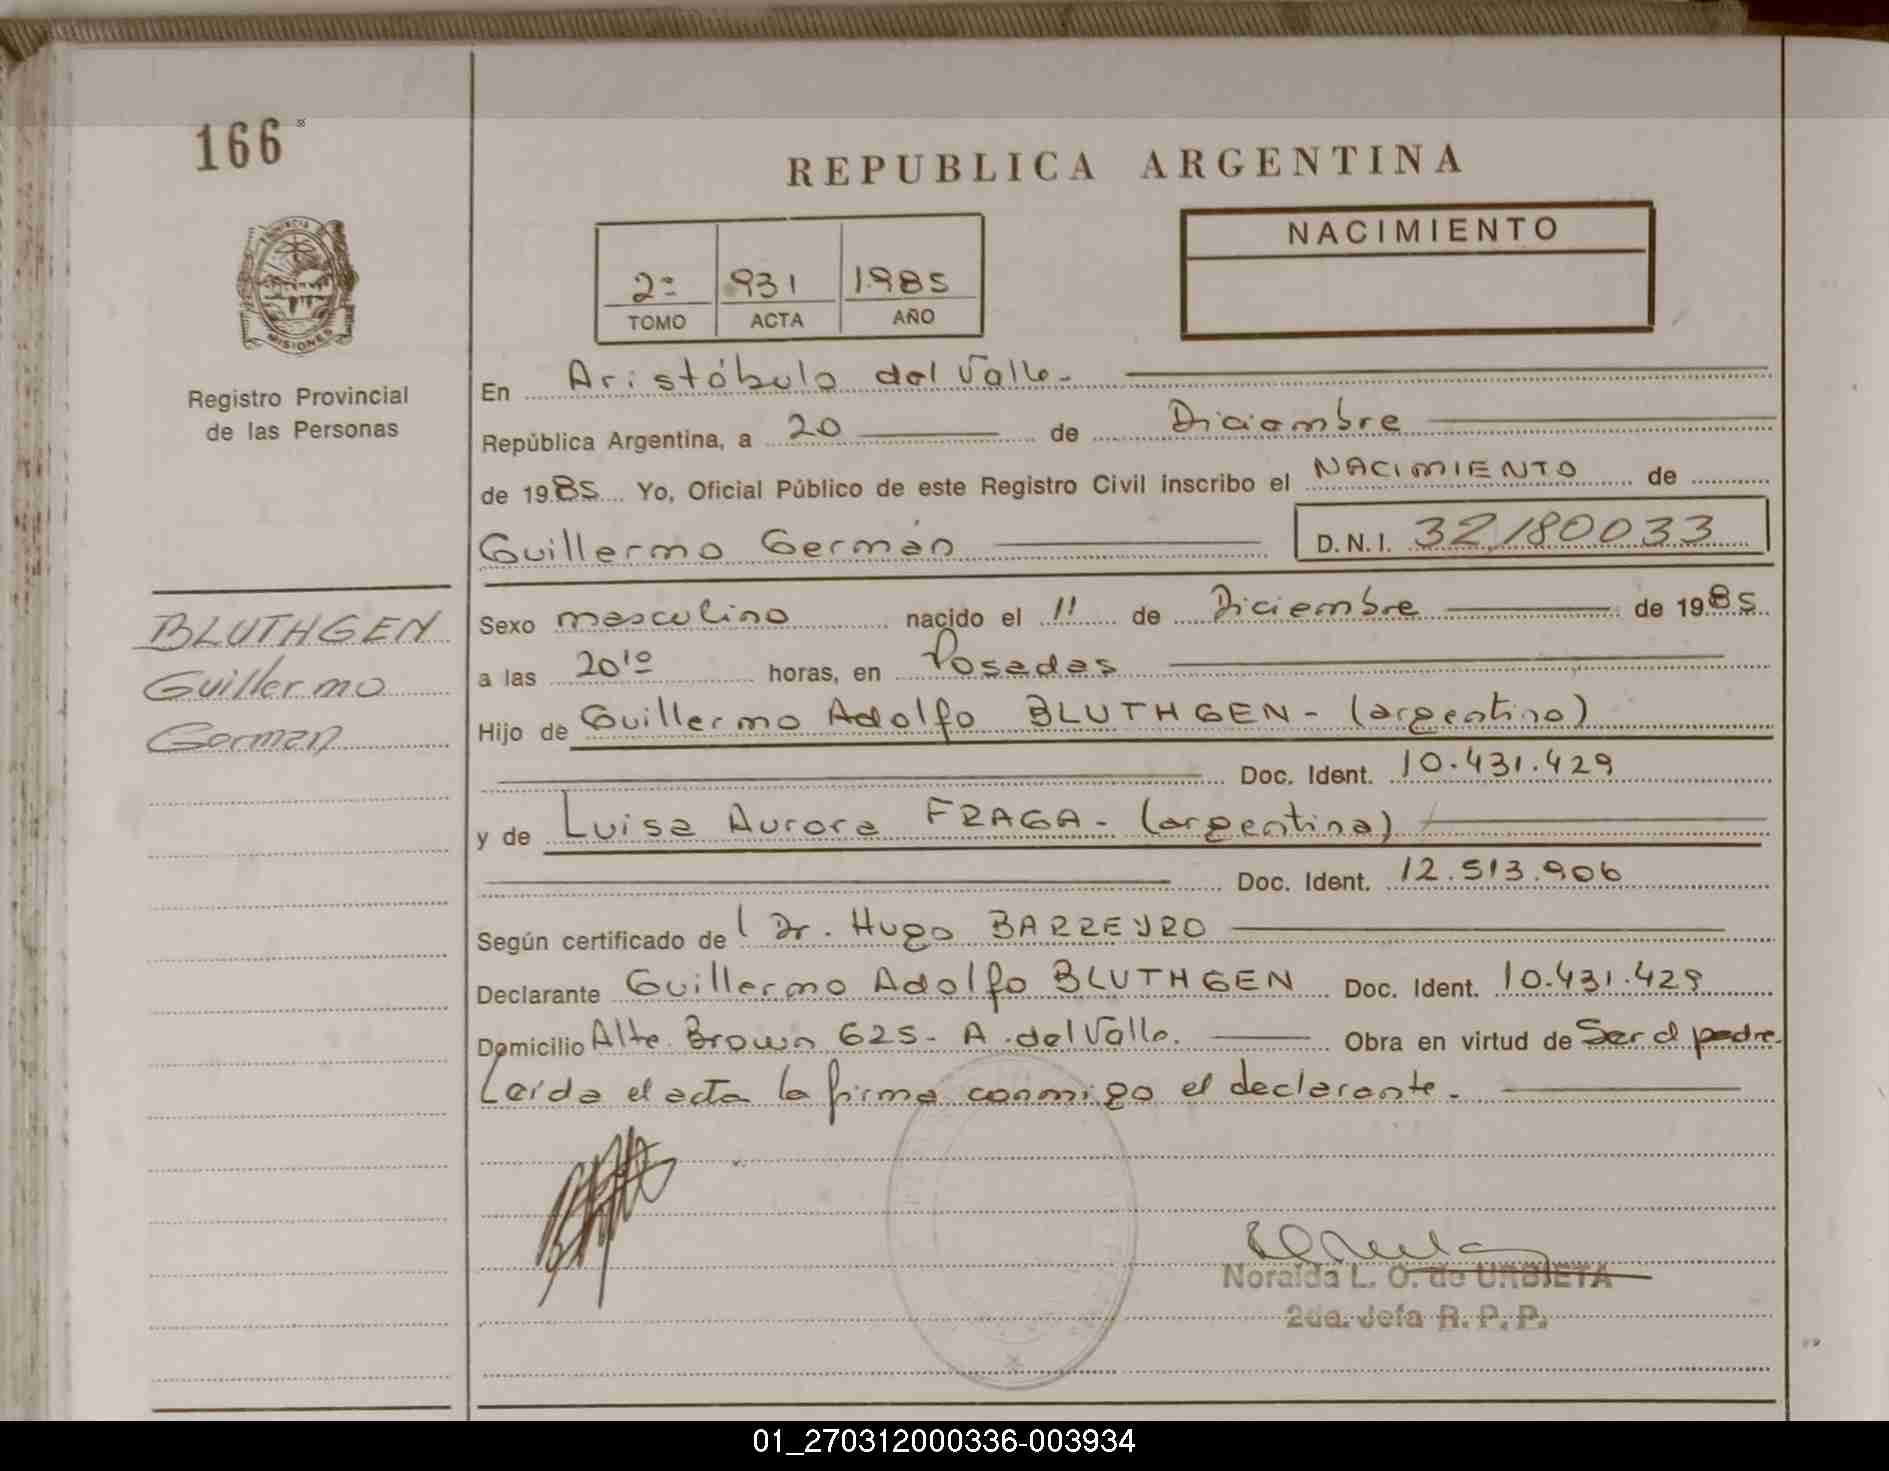 166
REPUBLICA ARGENTINA
PROVINCIA
MISIONES
Registro Provincial
de las Personas
2º 931 1985
TOMO ACTA AÑO
NACIMIENTO
En Aristóbulo del Valle.-
República Argentina, a 20 de Diciembre
de 1985 Yo, Oficial Público de este Registro Civil inscribo el NACIMIENTO de
Guillermo Germán D.N.I. 32180033
BLUTHGEN
Guillermo
German
Sexo masculino nacido el 11 de Diciembre de 1985
a las 20¹⁰ horas, en Posadas
Hijo de Guillermo Adolfo BLUTHGEN - (argentino)
Doc. Ident. 10.431.429
y de Luisa Aurora FRAGA - (argentina)
Doc. Ident. 12.513.906
Según certificado de Dr. Hugo BARREYRO
Declarante Guillermo Adolfo BLUTHGEN Doc. Ident. 10.431.429
Domicilio Alte. Brown 625 - A. del Valle. Obra en virtud de Ser el padre.
Leída el acta la firma conmigo el declarante.-
Noraida L. O. de URBIETA
2da. Jefa R. P. P.
01_270312000336-003934